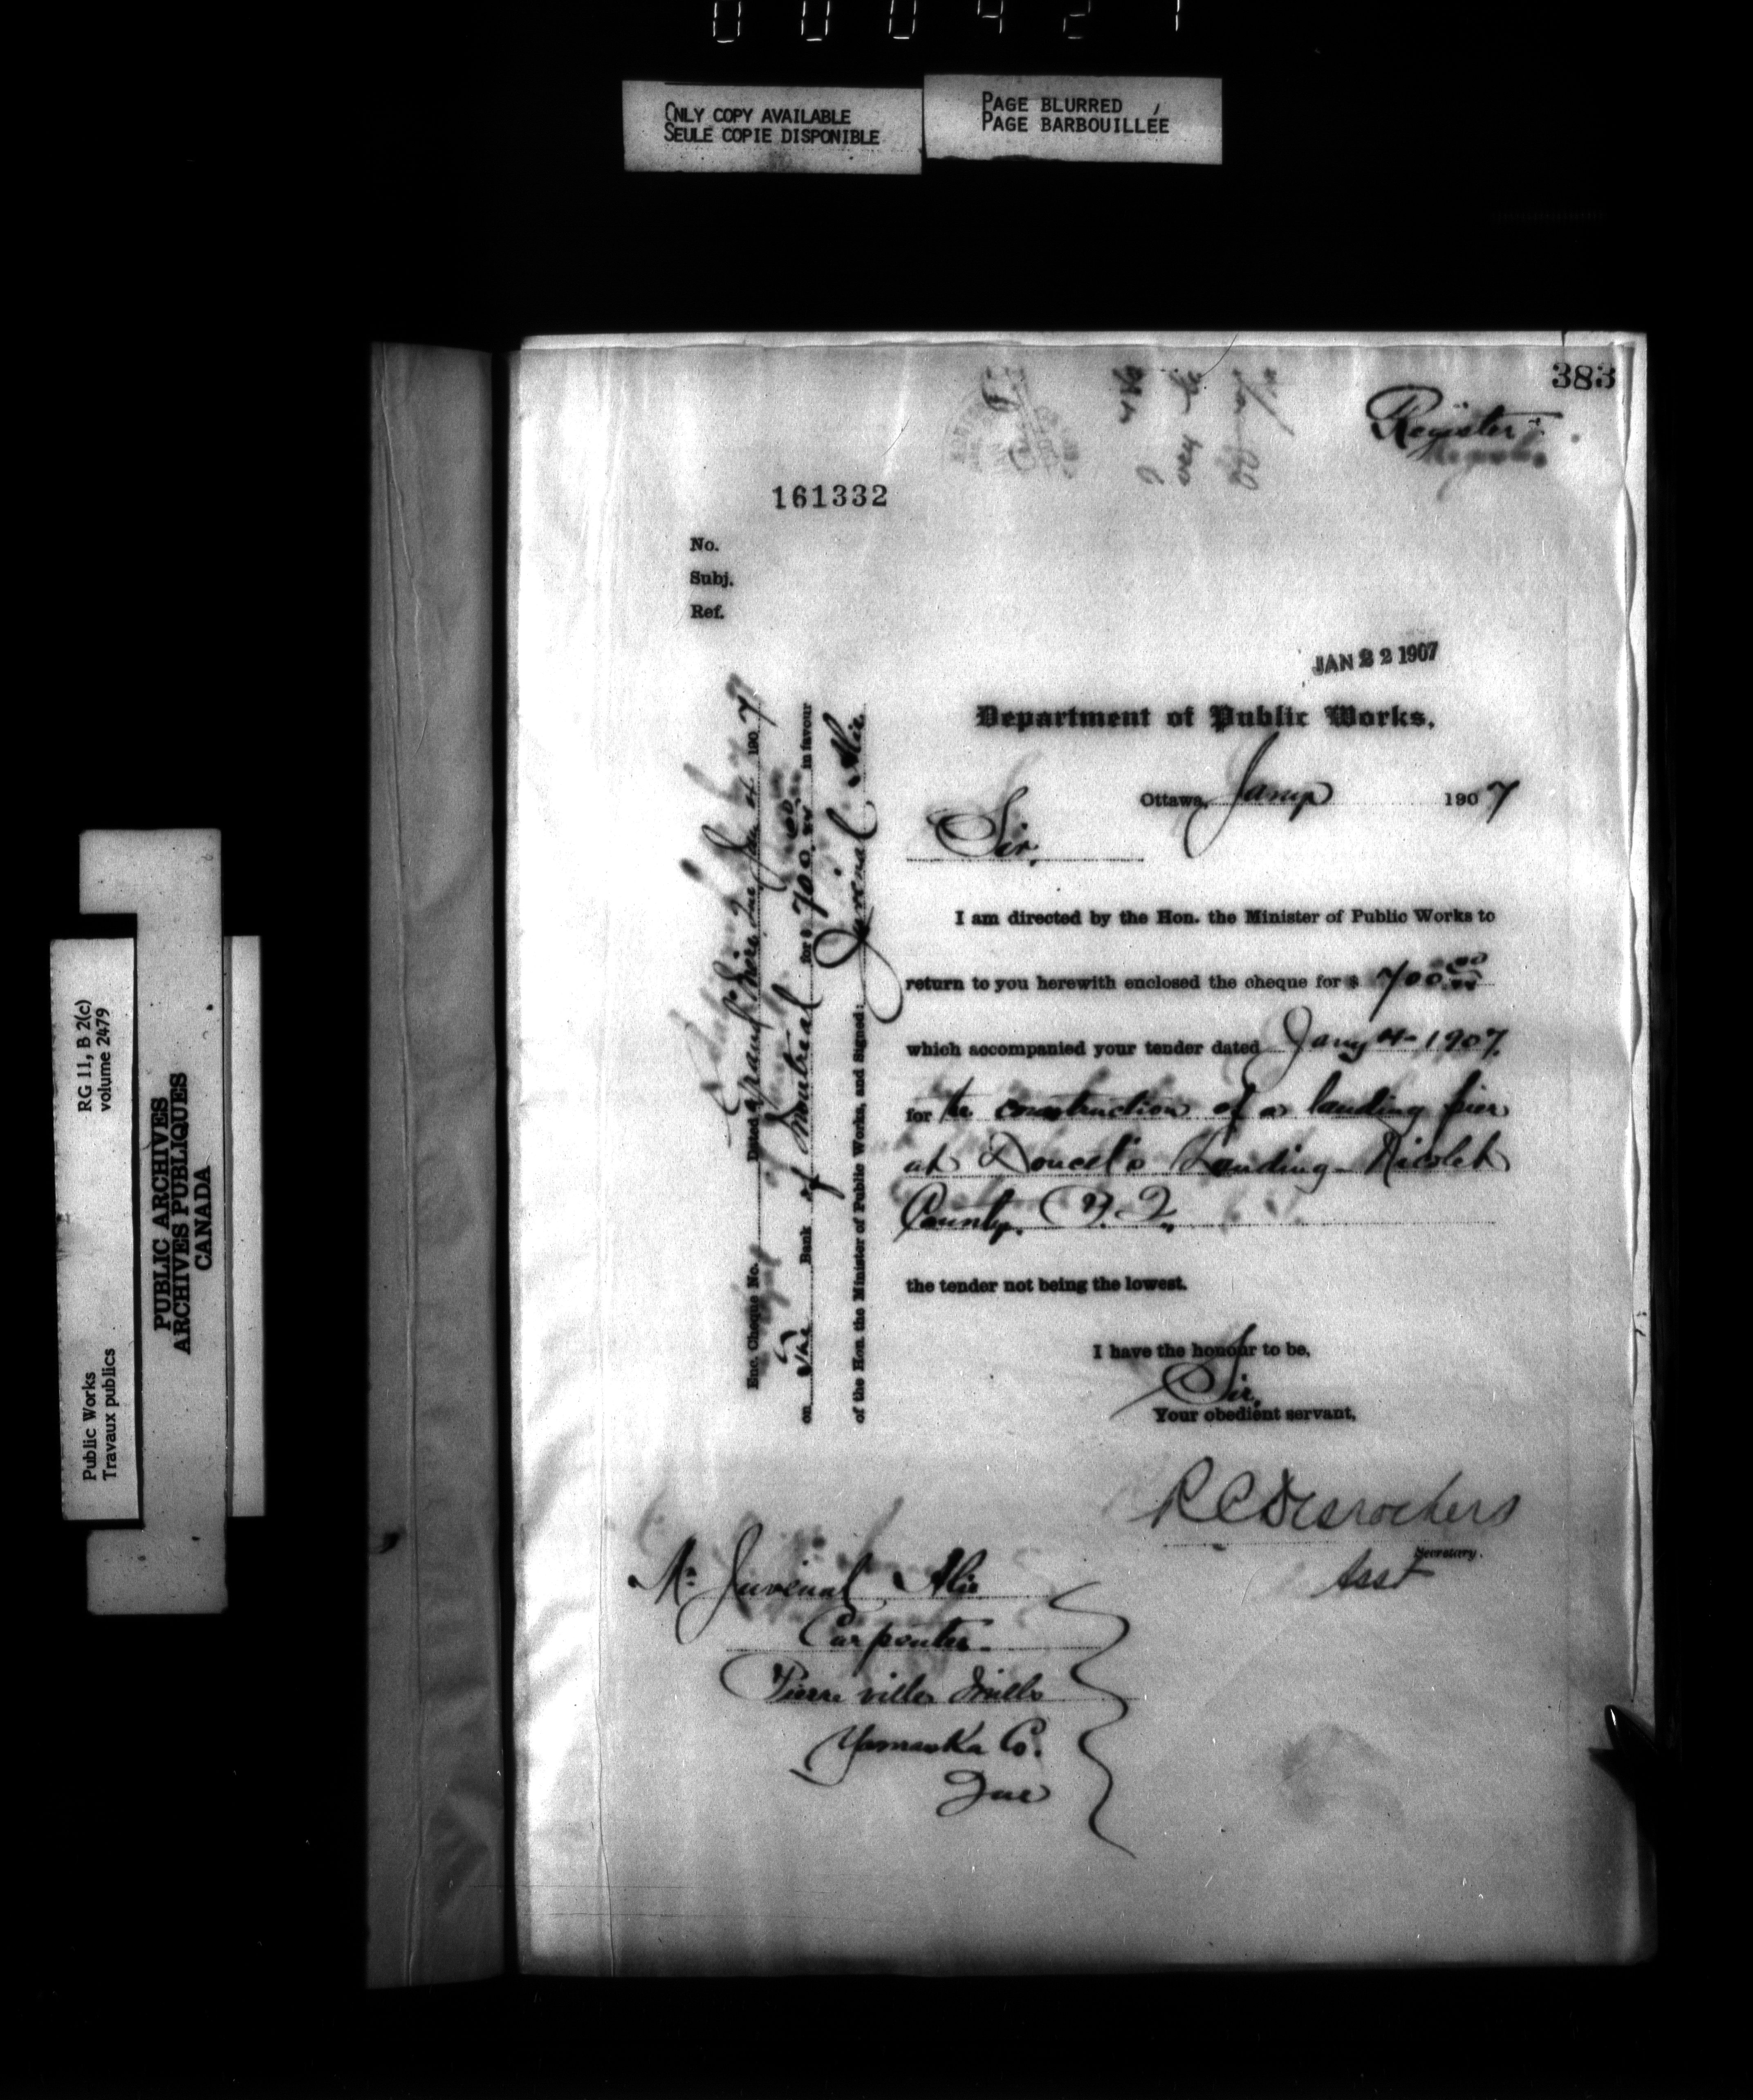 000421
ONLY COPY AVAILABLE
SEULE COPIE DISPONIBLE
PAGE BLURRED
PAGE BARBOUILLÉE
383
Register
161332
No.
Subj.
Ref.
JAN 22 1907
Department of Public Works.
Ottawa, Jany 1907
Sir,
I am directed by the Hon. the Minister of Public Works to
return to you herewith enclosed the cheque for $ 700.00
which accompanied your tender dated Jany 4 - 1907.
for the construction of a landing pier
at Doucet's Landing - Nicolet
County. P. Q.
the tender not being the lowest.
I have the honour to be,
Sir,
Your obedient servant,
R C Desrochers
Secretary.
Asst
Mr Juvenal Alie
Carpenter
Pierreville Mills
Yamaska Co.
Que
Enc. Cheque No. Dated 1907
on the Bank of Montreal for $ 700.00 in favour
of the Hon. the Minister of Public Works, and Signed: Juvenal Alie
RG 11, B 2(c)
volume 2479
Public Works
Travaux publics
PUBLIC ARCHIVES
ARCHIVES PUBLIQUES
CANADA